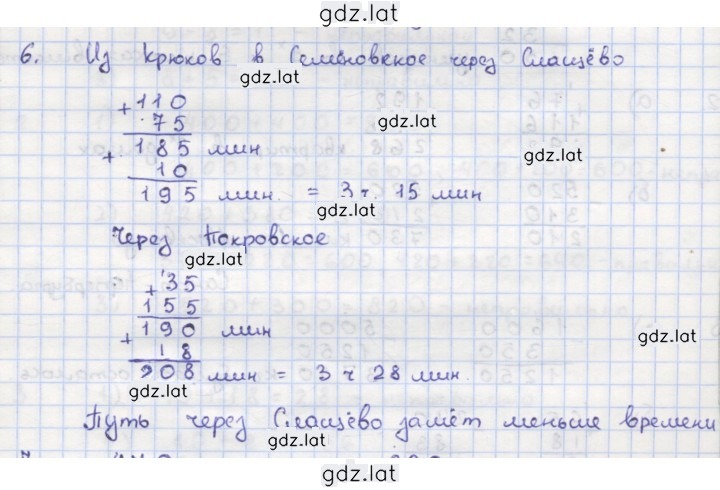 gdz.lat
6. Из Крюков в Семёновское через Слащёво
gdz.lat
+110
75
gdz.lat
185 мин
gdz.lat
+
10
195 мин. = 3 ч. 15 мин
gdz.lat
Через Покровское
gdz.lat
+35
155
190 мин
gdz.lat
+
18
208 мин = 3 ч 28 мин.
gdz.lat
Путь через Слащёво займёт меньше времени
gdz.lat
gdz.lat